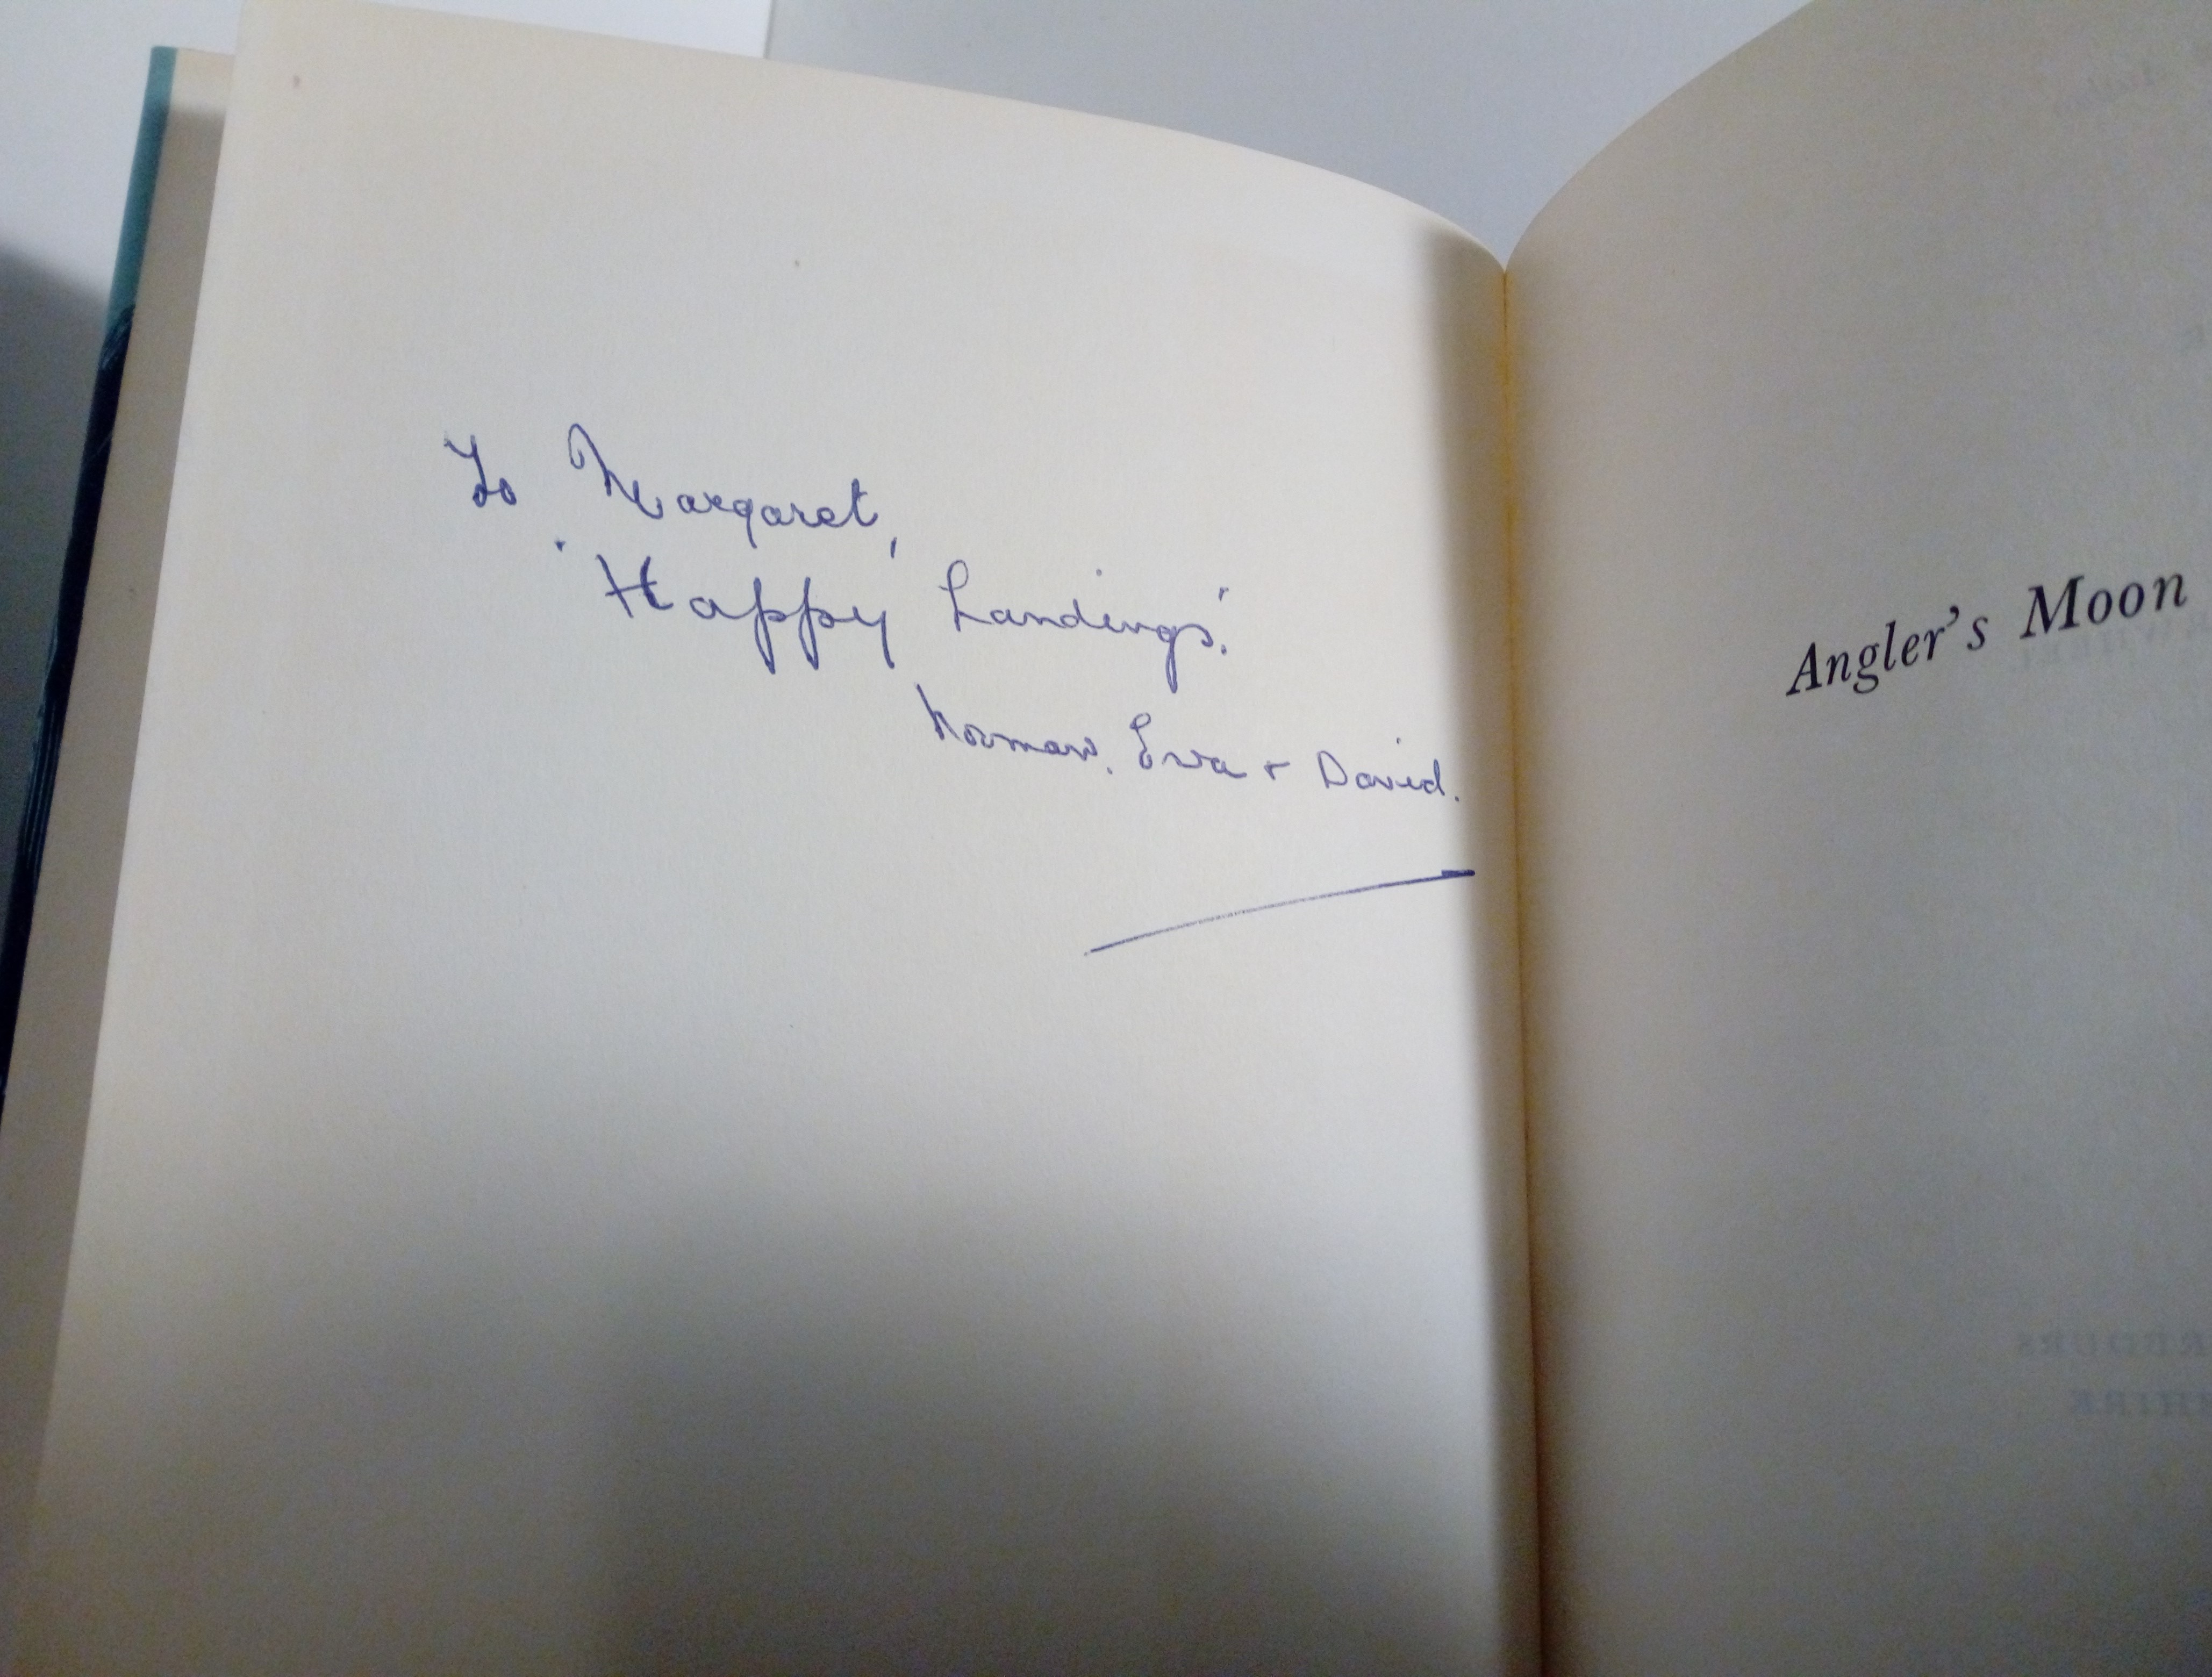 To Margaret,
'Happy Landings'.
Norman, Eva + David.
Angler's Moon